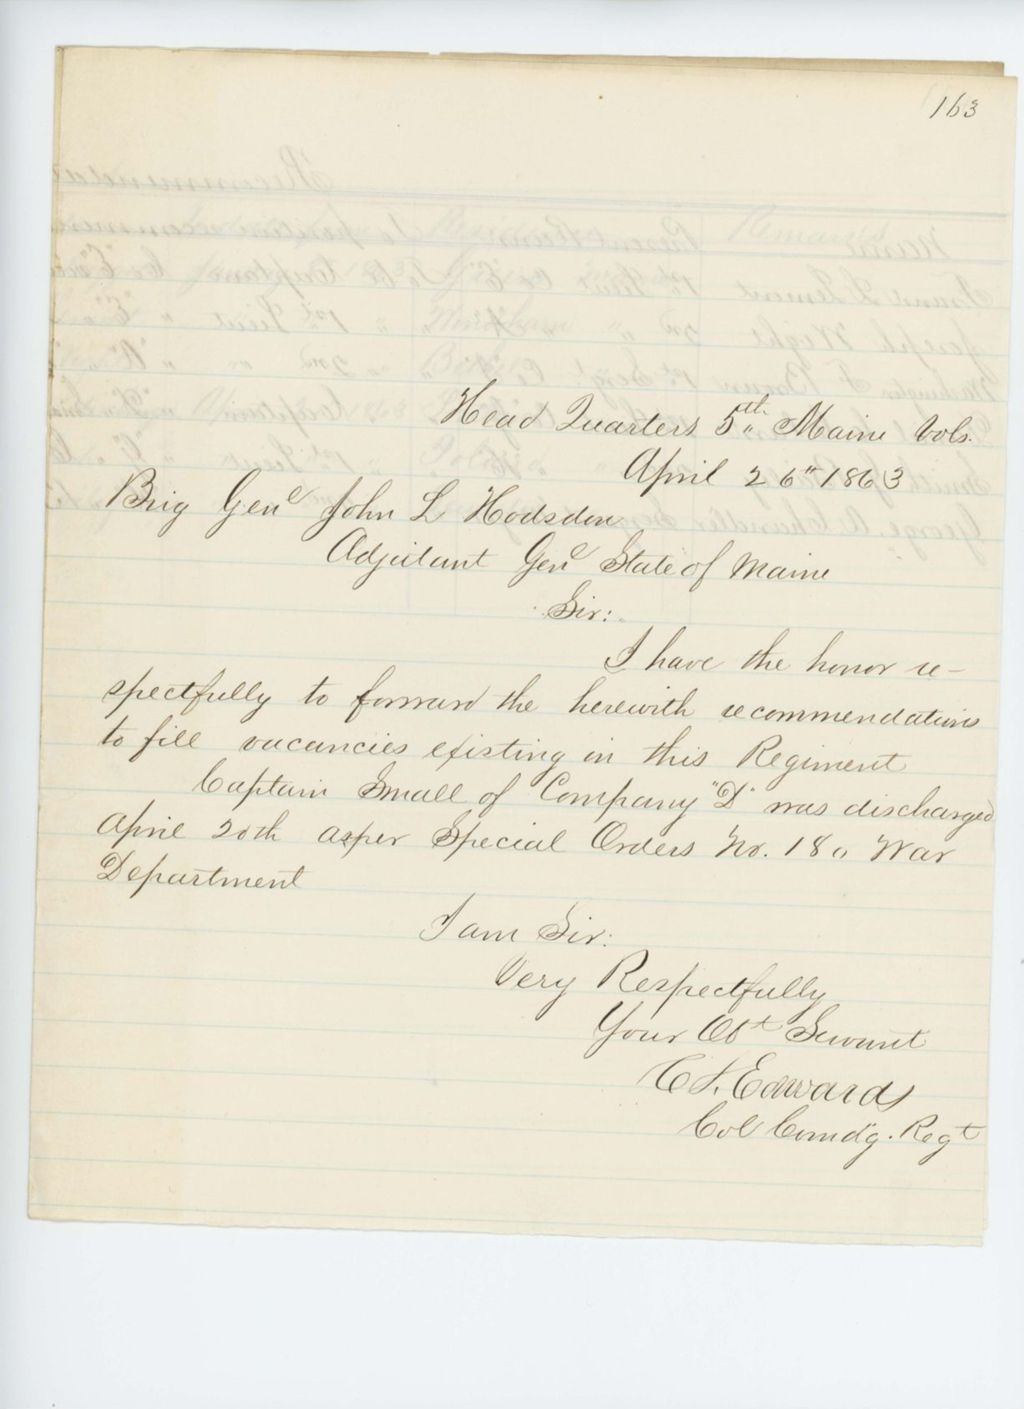 163
Head Quarters 5th Maine Vols.
April 26" 1863
Brig Genl John L Hodsdon
Adjutant Genl State of Maine
Sir:
I have the honor re-
spectfully to forward the herewith recommendations
to fill vacancies existing in this Regiment
Captain Small of Company "D" was discharged
April 20th as per Special Orders No. 18 War
Department
I am Sir:
Very Respectfully
Your Obt Servant
C S. Edwards
Col Comd'g. Regt